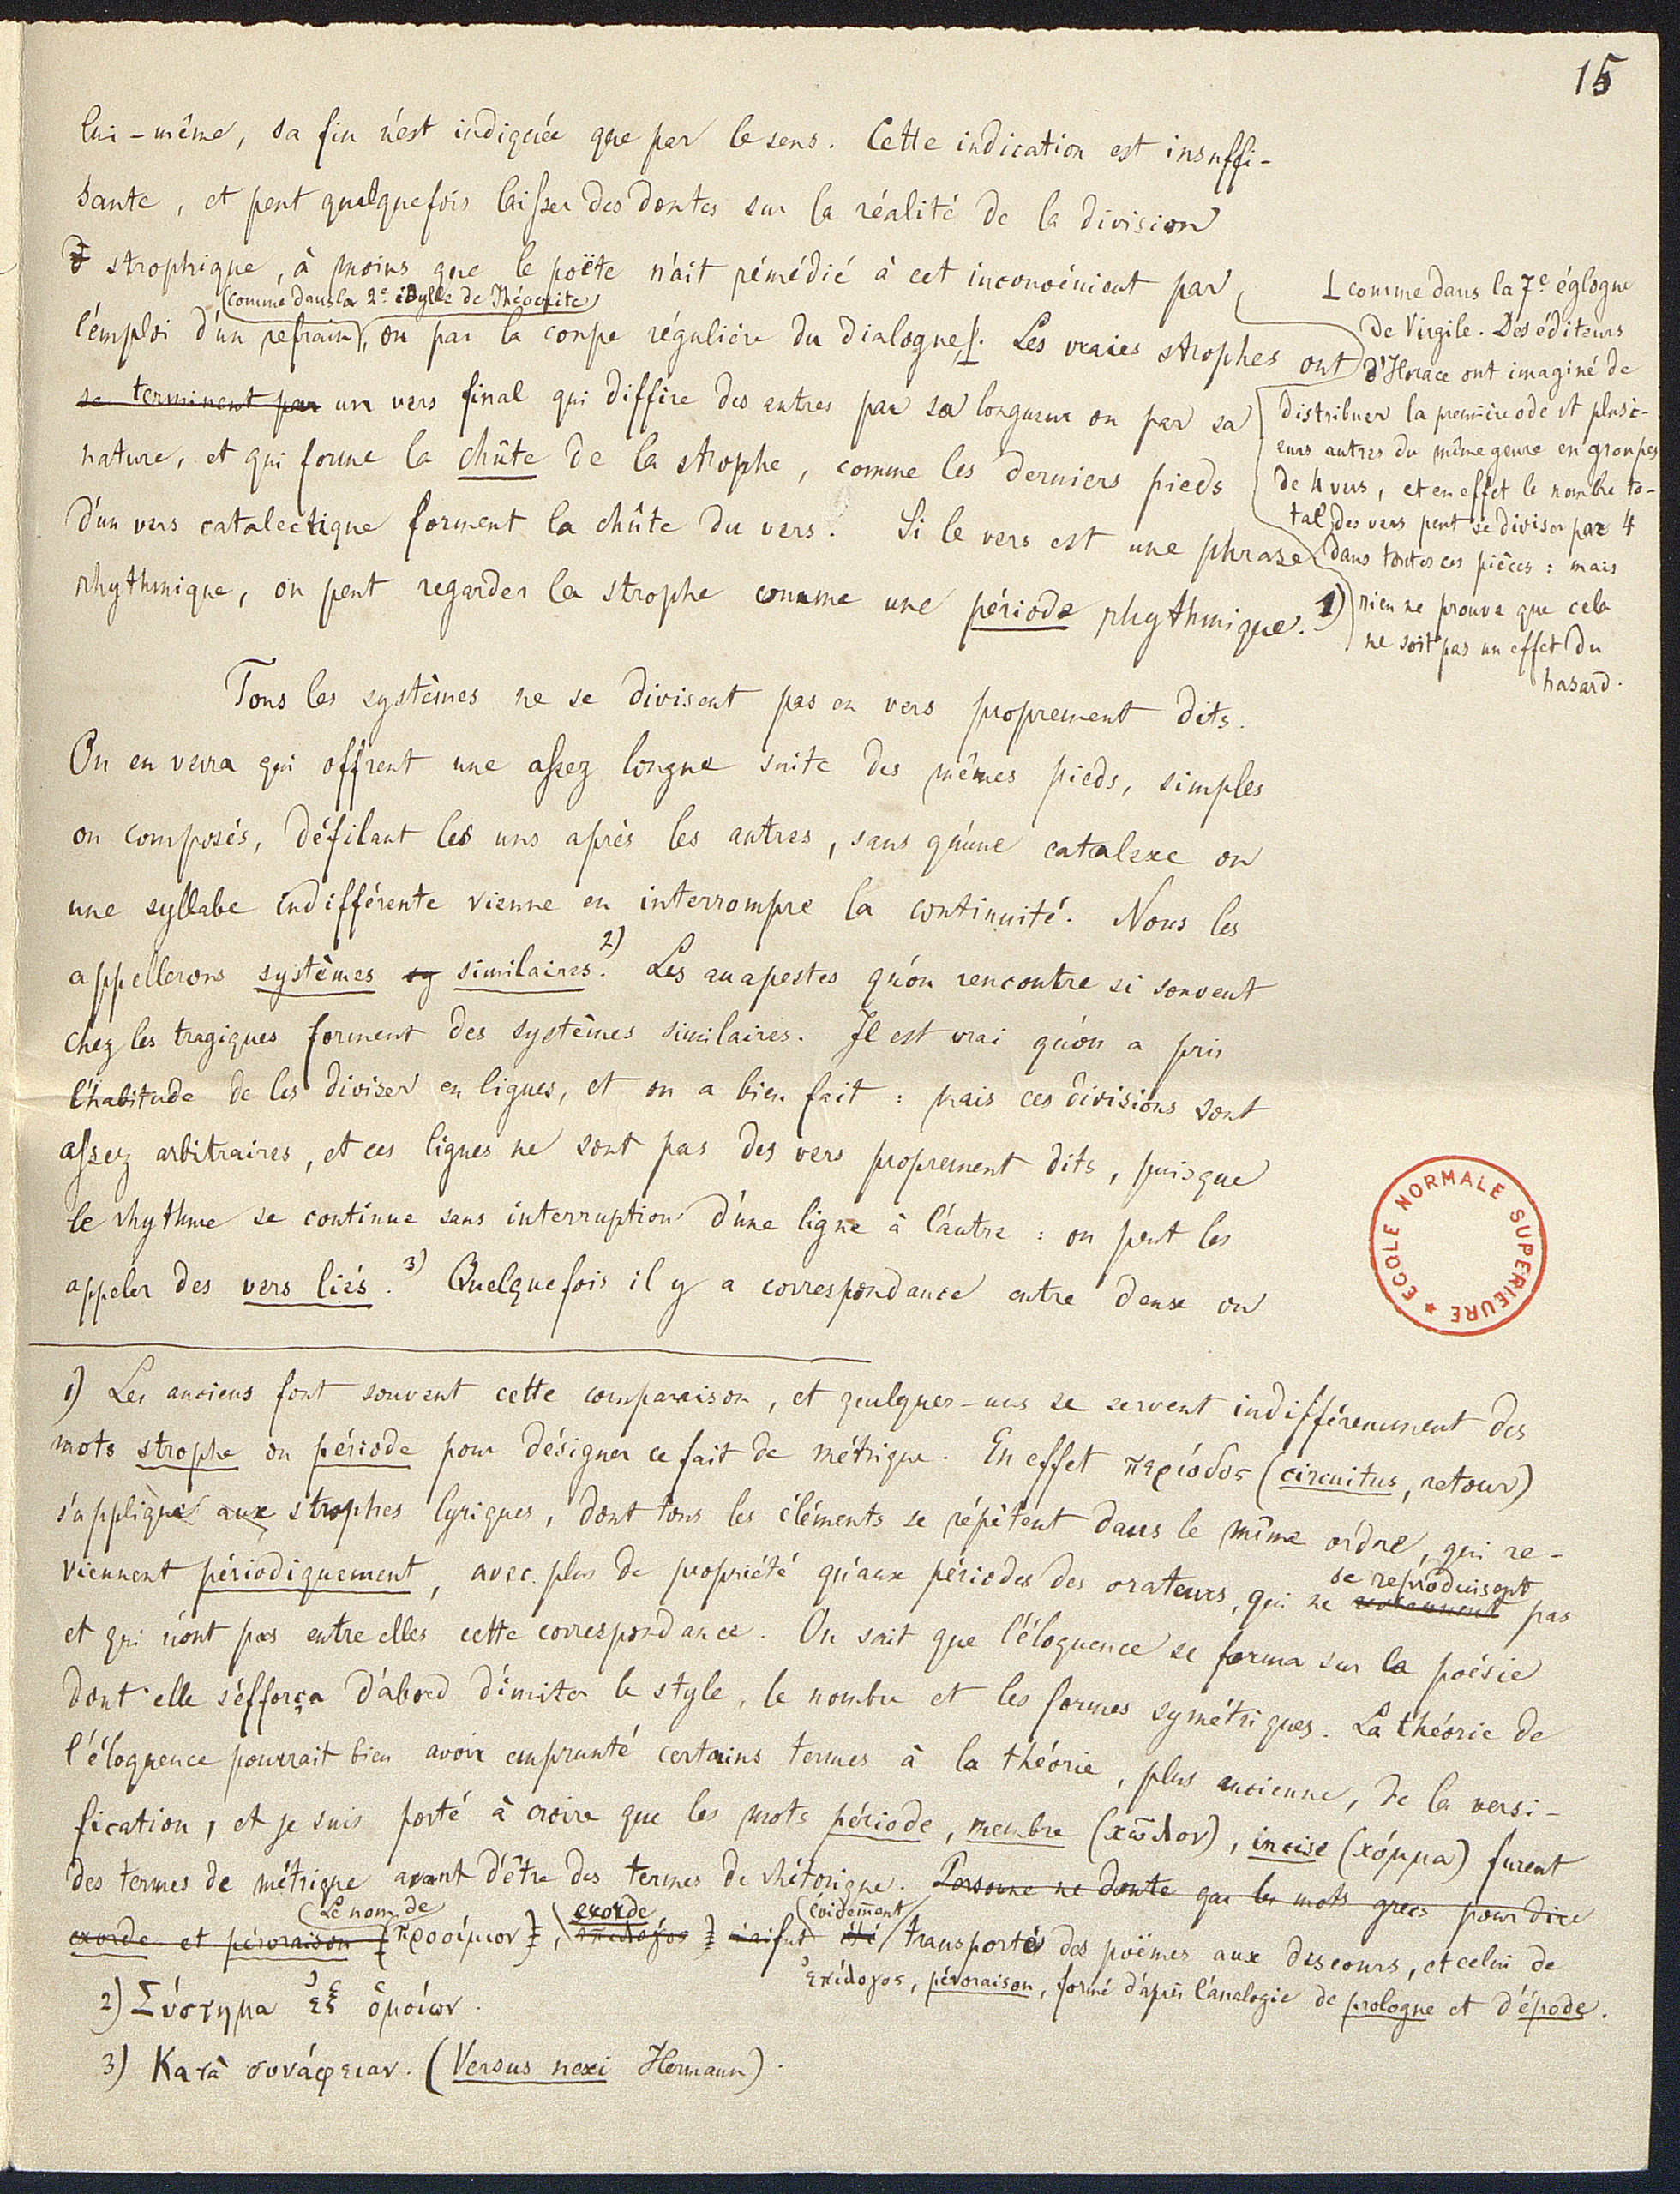 15
lui-même, sa fin n'est indiquée que par le sens. Cette indication est insuffi-
sante, et peut quelquefois laisser des doutes sur la réalité de la division
strophique, à moins que le poëte n'ait rémédié à cet inconvénient par
(comme dans la 2e idylle de Théocrite)
l'emploi d'un refrain, ou par la coupe régulière du dialogue. Les vraies strophes ont
se terminent par un vers final qui diffère des autres par sa longueur ou par sa
nature, et qui forme la chûte de la strophe, comme les derniers pieds
d'un vers catalectique forment la chûte du vers. Si le vers est une phrase
rhythmique, on peut regarder la strophe comme une période rhythmique. 1)
⊥ comme dans la 7e églogue
de Virgile. Des éditeurs
d'Horace ont imaginé de
distribuer la première ode et plusi-
eurs autres du même genre en groupes
de 4 vers, et en effet le nombre to-
tal des vers peut se diviser par 4
dans toutes ces pièces : mais
rien ne prouve que cela
ne soit pas un effet du
hasard.
Tous les systèmes ne se divisent pas en vers proprement dits.
On en verra qui offrent une assez longue suite des mêmes pieds, simples
ou composés, défilant les uns après les autres, sans qu'une catalexe ou
une syllabe indifférente vienne en interrompre la continuité. Nous les
appellerons systèmes sy similaires. 2) Les anapestes qu'on rencontre si souvent
chez les tragiques forment des systèmes similaires. Il est vrai qu'on a pris
l'habitude de les diviser en lignes, et on a bien fait : mais ces divisions sont
assez arbitraires, et ces lignes ne sont pas des vers proprement dits, puisque
le rhythme se continue sans interruption d'une ligne à l'autre : on peut les
appeler des vers liés. 3) Quelquefois il y a correspondance entre deux ou
ECOLE NORMALE SUPERIEURE
1) Les anciens font souvent cette comparaison, et quelques-uns se servent indifféremment des
mots strophe ou période pour désigner ce fait de métrique. En effet περίοδος (circuitus, retour)
s'applique aux strophes lyriques, dont tous les éléments se répètent dans le même ordre, qui re-
viennent périodiquement, avec plus de propriété qu'aux périodes des orateurs, qui ne se reproduisent pas
et qui n'ont pas entre elles cette correspondance. On sait que l'éloquence se forma sur la poésie
dont elle s'efforça d'abord d'imiter le style, le nombre et les formes symétriques. La théorie de
l'éloquence pourrait bien avoir emprunté certains termes à la théorie, plus ancienne, de la versi-
fication, et je suis porté à croire que les mots période, membre (κῶλον), incise (κόμμα) furent
des termes de métrique avant d'être des termes de rhétorique. Personne ne doute que les mots grecs pour dire
Le nom de exorde évidemment
exorde et péroraison (προοίμιον), ἐπίλογος fut été transportés des poëmes aux discours, et celui de
ἐπίλογος, péroraison, formé d'après l'analogie de prologue et d'épode.
2) Σύστημα ἐξ ὁμοίων.
3) Κατὰ συνάφειαν. (Versus nexi Hermann).